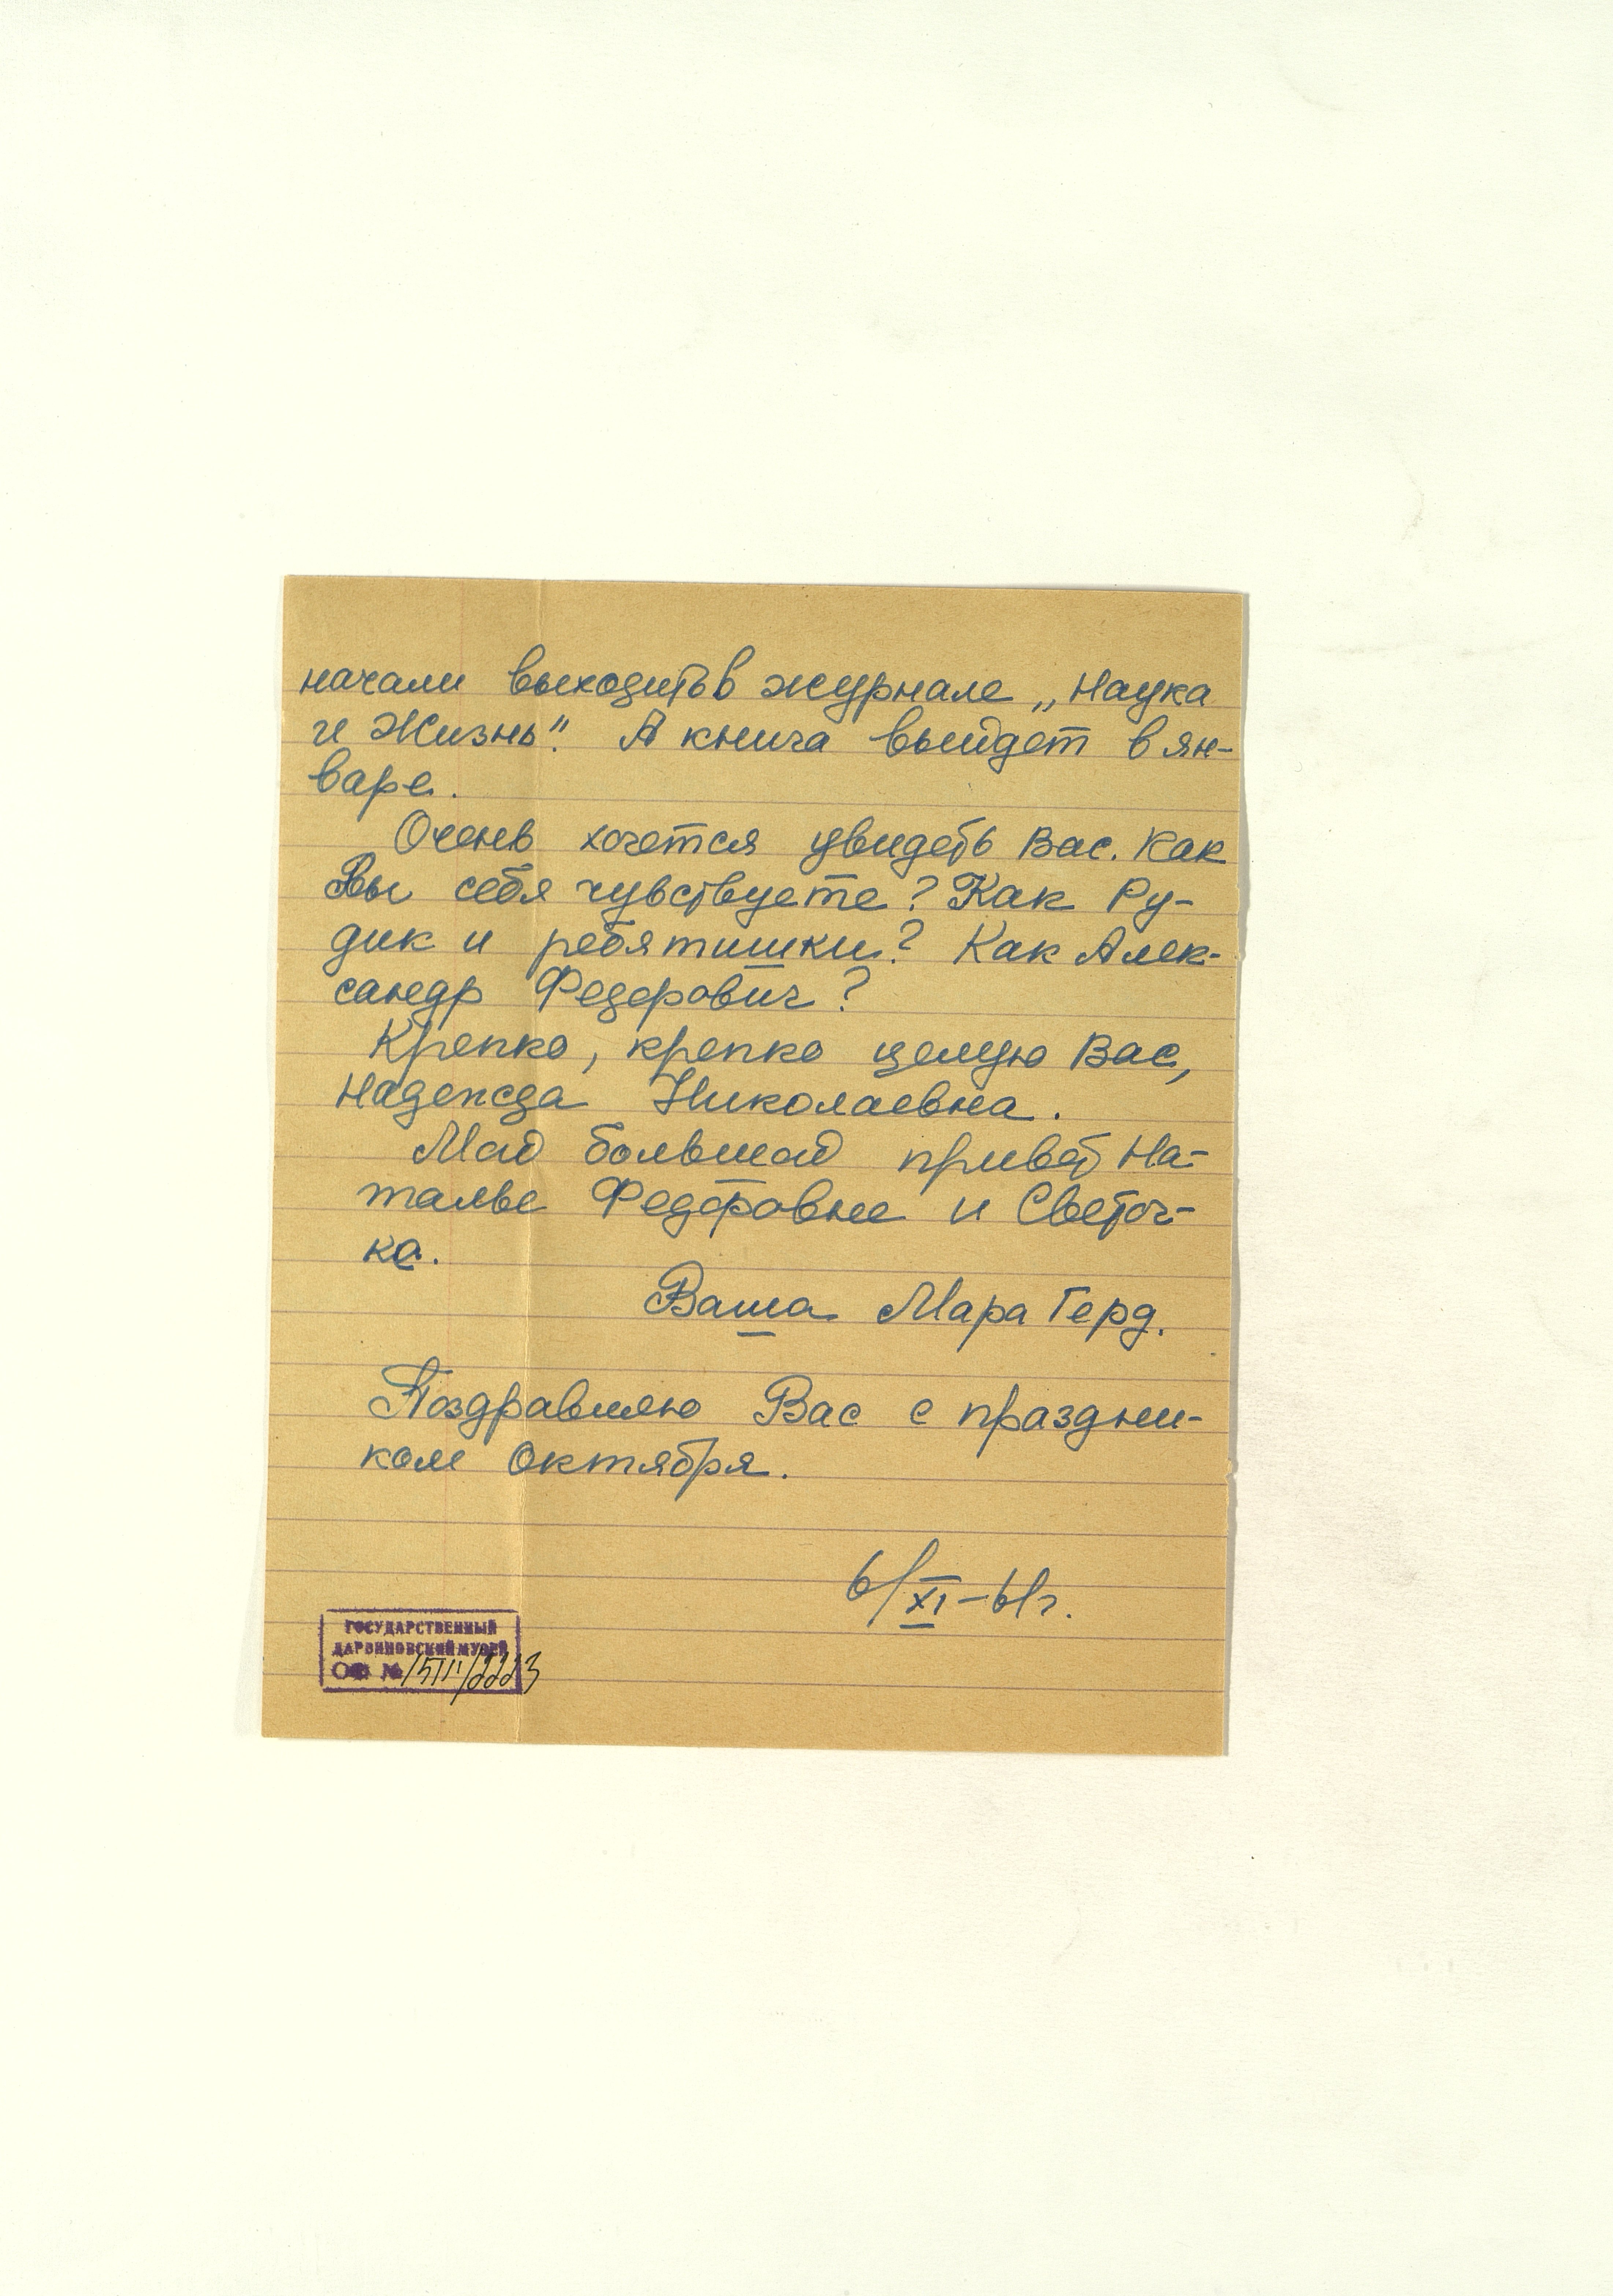 начали выходить в журнале „Наука
и Жизнь". А книга выйдет в ян-
варе.
Очень хочется увидеть Вас. Как
Вы себя чувствуете? Как Ру-
дик и ребятишки? Как Алек-
сандр Федорович?
Крепко, крепко целую Вас,
Надежда Николаевна.
Мой большой привет На-
талье Федоровне и Светоч-
ке.
Ваша Мара Герд.
Поздравляю Вас с праздни-
ком Октября.
6/XI-61г.
ГОСУДАРСТВЕННЫЙ
ДАРВИНОВСКИЙ МУЗЕЙ
ОФ №